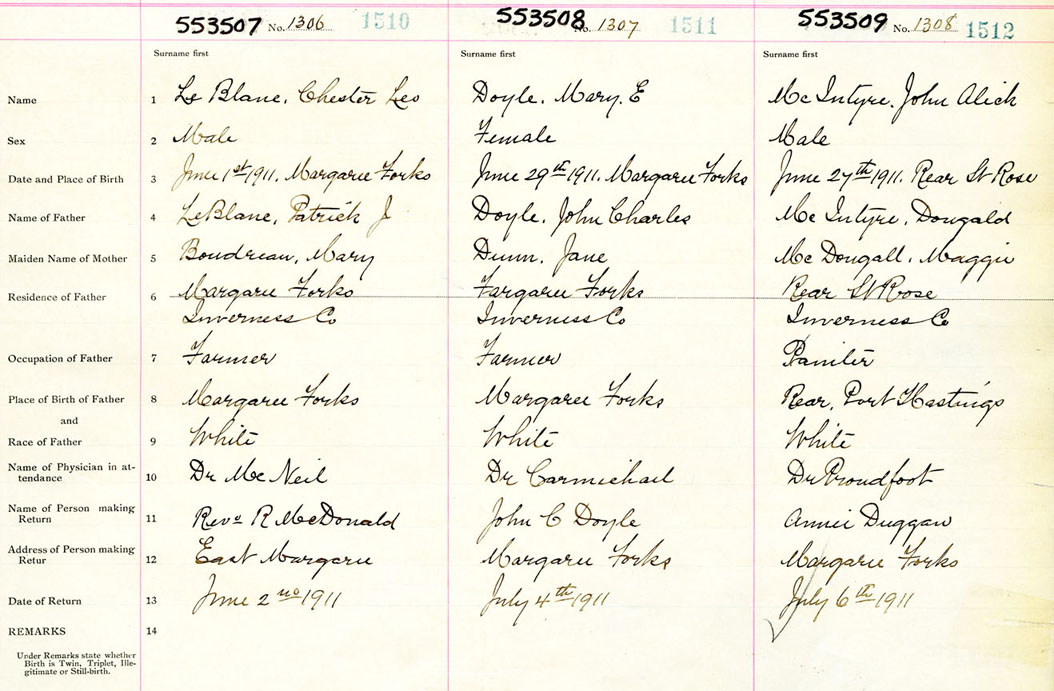 553507 No. 1306 1510 553508 No. 1307 1511 553509 No. 1308 1512
Surname first Surname first Surname first
Name 1 Le Blanc, Chester Leo Doyle, Mary. E Mc Intyre, John Alick
Sex 2 Male Female Male
Date and Place of Birth 3 June 1st 1911. Margaree Forks June 29th 1911. Margaree Forks June 27th 1911. Rear St Rose
Name of Father 4 LeBlanc, Patrick J Doyle, John Charles Mc Intyre, Dougald
Maiden Name of Mother 5 Boudreau, Mary Dunn, Jane Mc Dougall, Maggie
Residence of Father 6 Margaree Forks Fargaree Forks Rear St Rose
Inverness Co Inverness Co Inverness Co
Occupation of Father 7 Farmer Farmer Painter
Place of Birth of Father 8 Margaree Forks Margaree Forks Rear, Port Hastings
and
Race of Father 9 White White White
Name of Physician in at-
tendance 10 Dr McNeil Dr Carmichael Dr Proudfoot
Name of Person making
Return 11 Revd R McDonald John C Doyle Annie Duggan
Address of Person making
Retur 12 East Margaree Margaree Forks Margaree Forks
Date of Return 13 June 2nd 1911 July 4th 1911 July 6th 1911
REMARKS 14
Under Remarks state whether
Birth is Twin, Triplet, Ille-
gitimate or Still-birth.